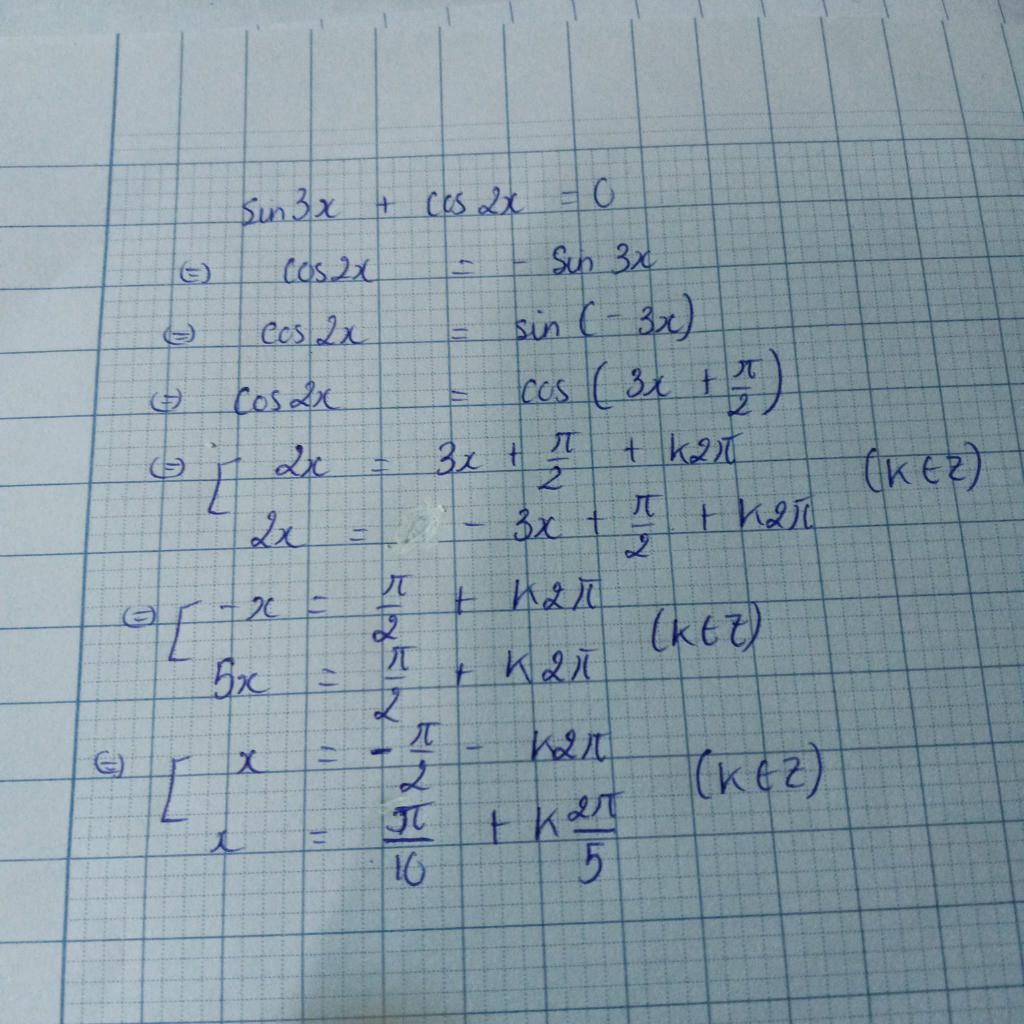 sin3x + cos2x = 0
⇔ cos2x = - sin 3x
⇔ cos2x = sin (- 3x)
⇔ cos2x = cos ( 3x + π/2 )
⇔ [ 2x = 3x + π/2 + k2π (k ∈ Z)
2x = - 3x + π/2 + k2π
⇔ [ -x = π/2 + k2π (k ∈ Z)
5x = π/2 + k2π
⇔ [ x = - π/2 - k2π (k ∈ Z)
x = π/10 + k 2π/5